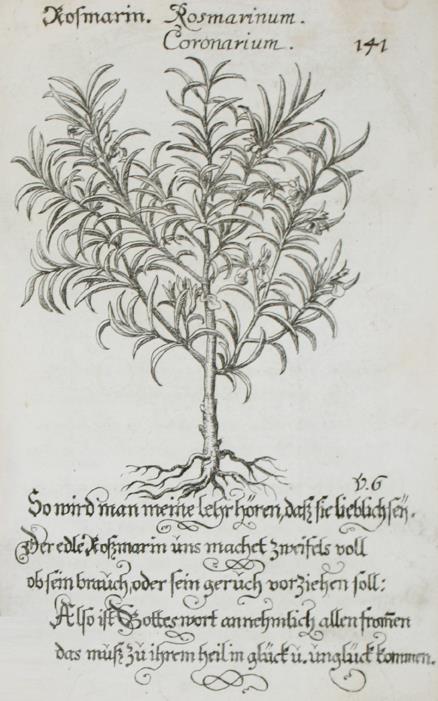 Rosmarin. Rosmarinum.
Coronarium. 141
v. 6
So wird man meine lehr hören, daß sie lieblich seÿ.
Der edle Roßmarin uns machet zweifels voll
ob sein brauch, oder sein geruch vorziehen soll:
Also ist Gottes wort annehmlich allen from̄en
das muß zu ihrem heil in glück u. unglück kommen.